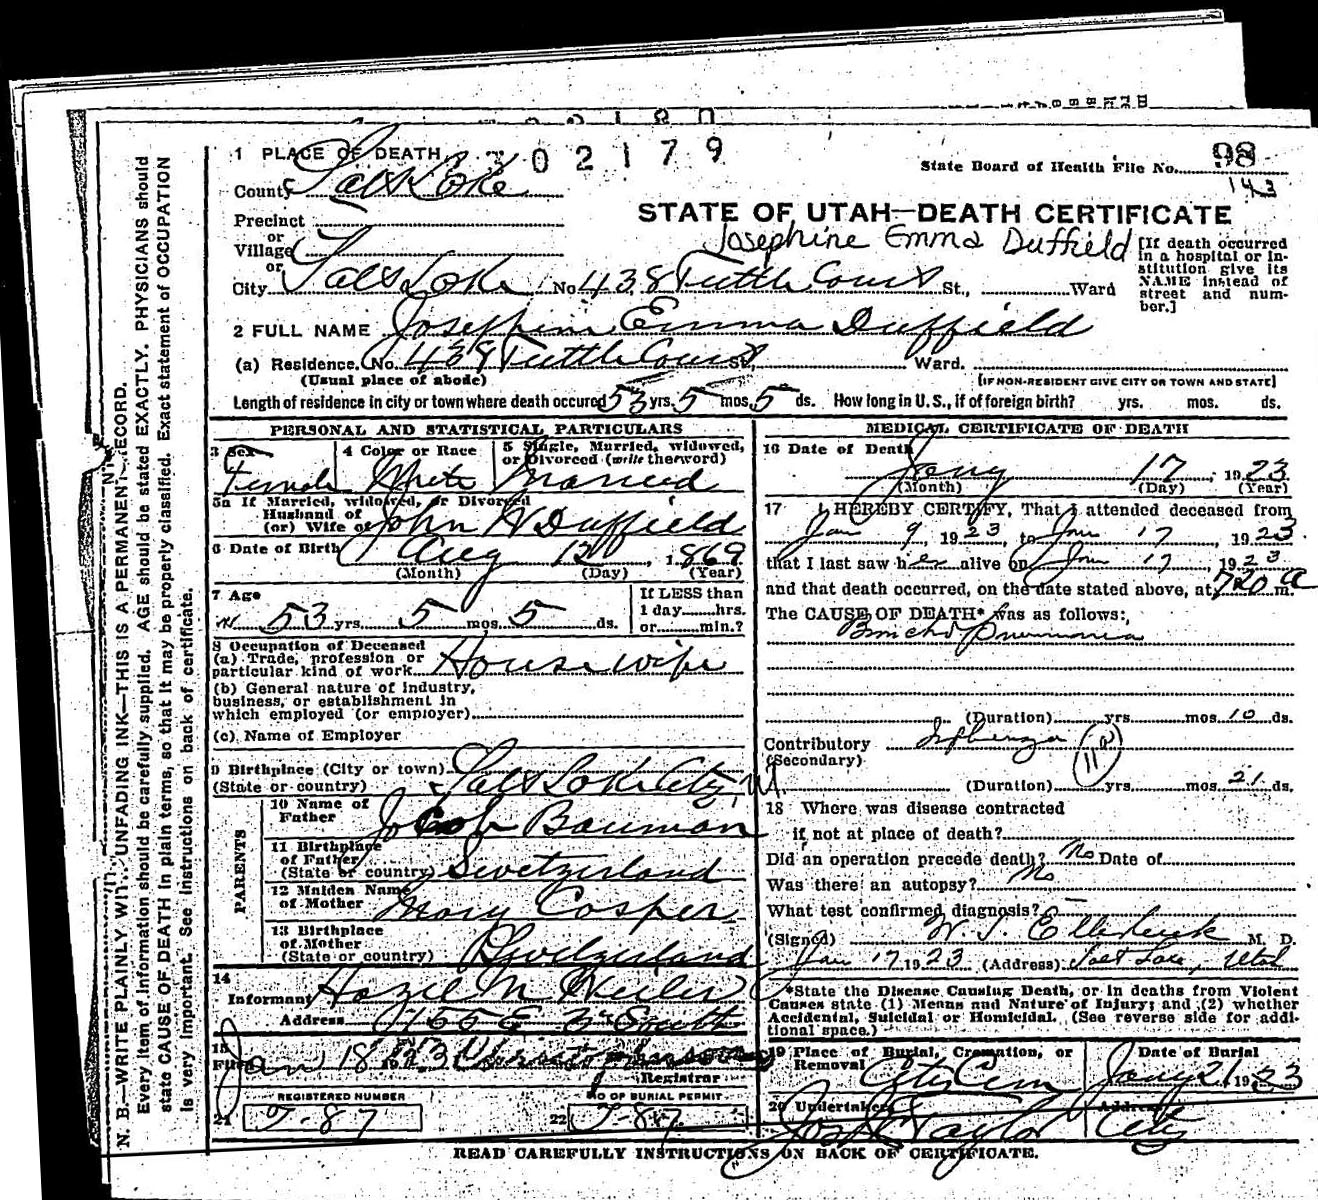 1 PLACE OF DEARTH 302179
State Board of Health File No. 98
143
County Salt Lake
STATE OF UTAH—DEATH CERTIFICATE
Precinct
or
Josephine Emma Duffield
Village
or
City Salt Lake No 438 Tuttle Court St., Ward
[If death occurred in a hospital or institution give its NAME instead of street and number.]
2 FULL NAME Josephine Emma Duffield
(a) Residence. No. 438 Tuttle Court St., Ward.
(Usual place of abode) [IF NON-RESIDENT GIVE CITY OR TOWN AND STATE]
Length of residence in city or town where death occured 53 yrs. 5 mos. 5 ds. How long in U. S., if of foreign birth? yrs. mos. ds.
PERSONAL AND STATISTICAL PARTICULARS
3 Sex Female
4 Color or Race White
5 Single, Married, widowed, or Divorced (write the word) Married
5a If Married, widowed, or Divorced
Husband of
(or) Wife of John W Duffield
6 Date of Birth Aug 12, 1869
(Month) (Day) (Year)
7 Age 53 yrs. 5 mos. 5 ds.
If LESS than
1 day hrs.
or min.?
8 Occupation of Deceased
(a) Trade, profession or
particular kind of work House wife
(b) General nature of industry,
business, or establishment in
which employed (or employer)
(c) Name of Employer
9 Birthplace (City or town) Salt Lake City, Ut.
(State or country)
PARENTS
10 Name of
Father Jacob Bauman
11 Birthplace
of Father
(State or country) Swetzerland
12 Maiden Name
of Mother Mary Casper
13 Birthplace
of Mother
(State or country) Swetzerland
14
Informant Hazel M Weiler
Address 1155 E 3rd South
15
Filed Jan 18 1923
Registrar
REGISTERED NUMBER NO OF BURIAL PERMIT
21 T-87 22 T-87
MEDICAL CERTIFICATE OF DEATH
16 Date of Death
Jany 17, 1923
(Month) (Day) (Year)
17 I HEREBY CERTIFY, That I attended deceased from
Jan 9, 1923, to Jan 17, 1923
that I last saw her alive on Jan 17, 1923
and that death occurred, on the date stated above, at 720 a m.
The CAUSE OF DEATH* was as follows:
Broncho Pneumonia
(Duration) yrs. mos. 10 ds.
Contributory Influenza 11a
(Secondary)
(Duration) yrs. mos. 21 ds.
18 Where was disease contracted
if not at place of death?
Did an operation precede death? No Date of
Was there an autopsy? No
What test confirmed diagnosis? —
(Signed) W. T. Ellerbeck M. D.
Jan 17 1923 (Address) Salt Lake, Utah
*State the Disease Causing Death, or in deaths from Violent
Causes state (1) Means and Nature of Injury; and (2) whether
Accidental, Suicidal or Homicidal. (See reverse side for addi-
tional space.)
19 Place of Burial, Cremation, or
Removal City Cem
Date of Burial
Jany 21 1923
20 Undertaker Jos E Taylor
Address City
READ CAREFULLY INSTRUCTIONS ON BACK OF CERTIFICATE.
N. B.—WRITE PLAINLY WITH UNFADING INK—THIS IS A PERMANENT RECORD.
Every item of information should be carefully supplied. AGE should be stated EXACTLY. PHYSICIANS should
state CAUSE OF DEATH in plain terms, so that it may be properly classified. Exact statement of OCCUPATION
is very important. See instructions on back of certificate.